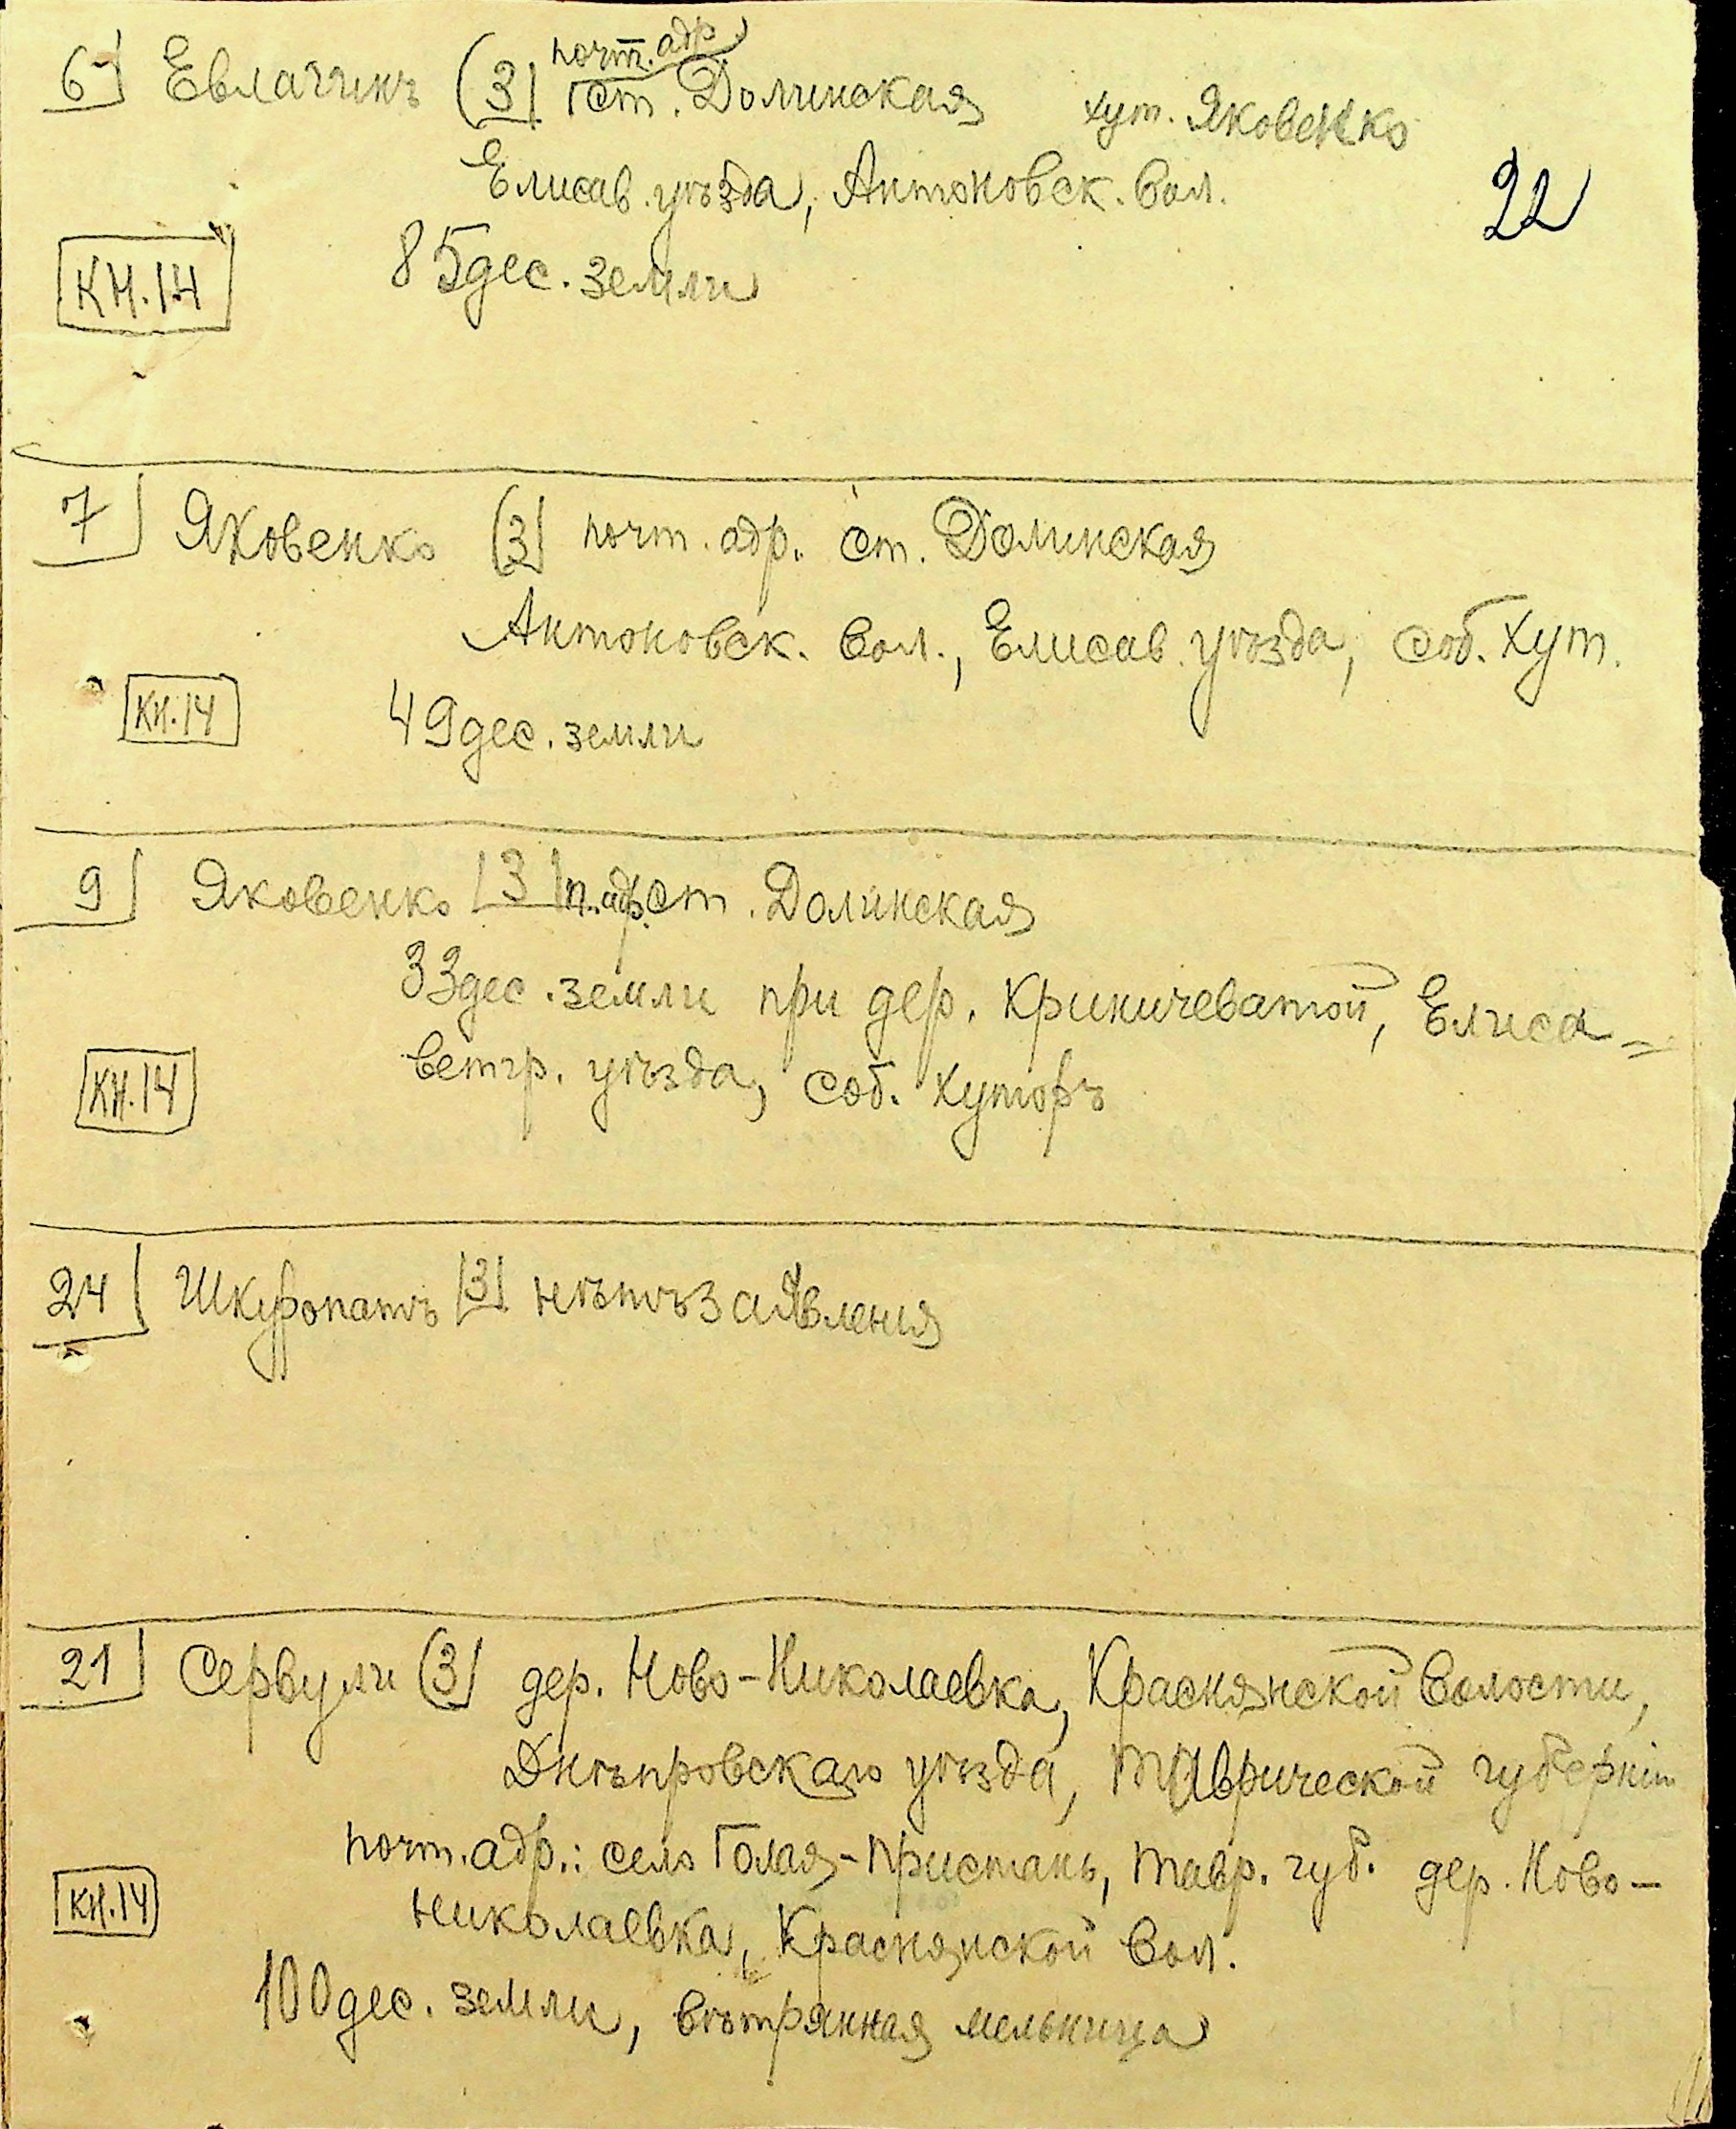 6 Евлаггинъ (3) почт. адр. ст. Долинская хут. Яковенко
Елисав. уѣзда, Антоновск. вол.
22
85 дес. земли
КН.14
7 Яковенко (3) почт. адр. ст. Долинская
Антоновск. вол., Елисав. уѣзда, соб. хут.
КН.14
49 дес. земли
9 Яковенко 3 п. адр. ст. Долинская
33 дес. земли при дер. Криничеватой, Елиса=
ветгр. уѣзда, соб. хуторъ
КН.14
24 Шкуропатъ 3 нѣтъ заявления
21 Сервули (3) дер. Ново-Николаевка, Краснянской волости,
Днѣпровскаго уѣзда, Таврической губернiи
почт. адр.: село Голая-Пристань, Тавр. губ. дер. Ново-
николаевка, Краснянской вол.
КН.14
100 дес. земли, вѣтрянная мельница